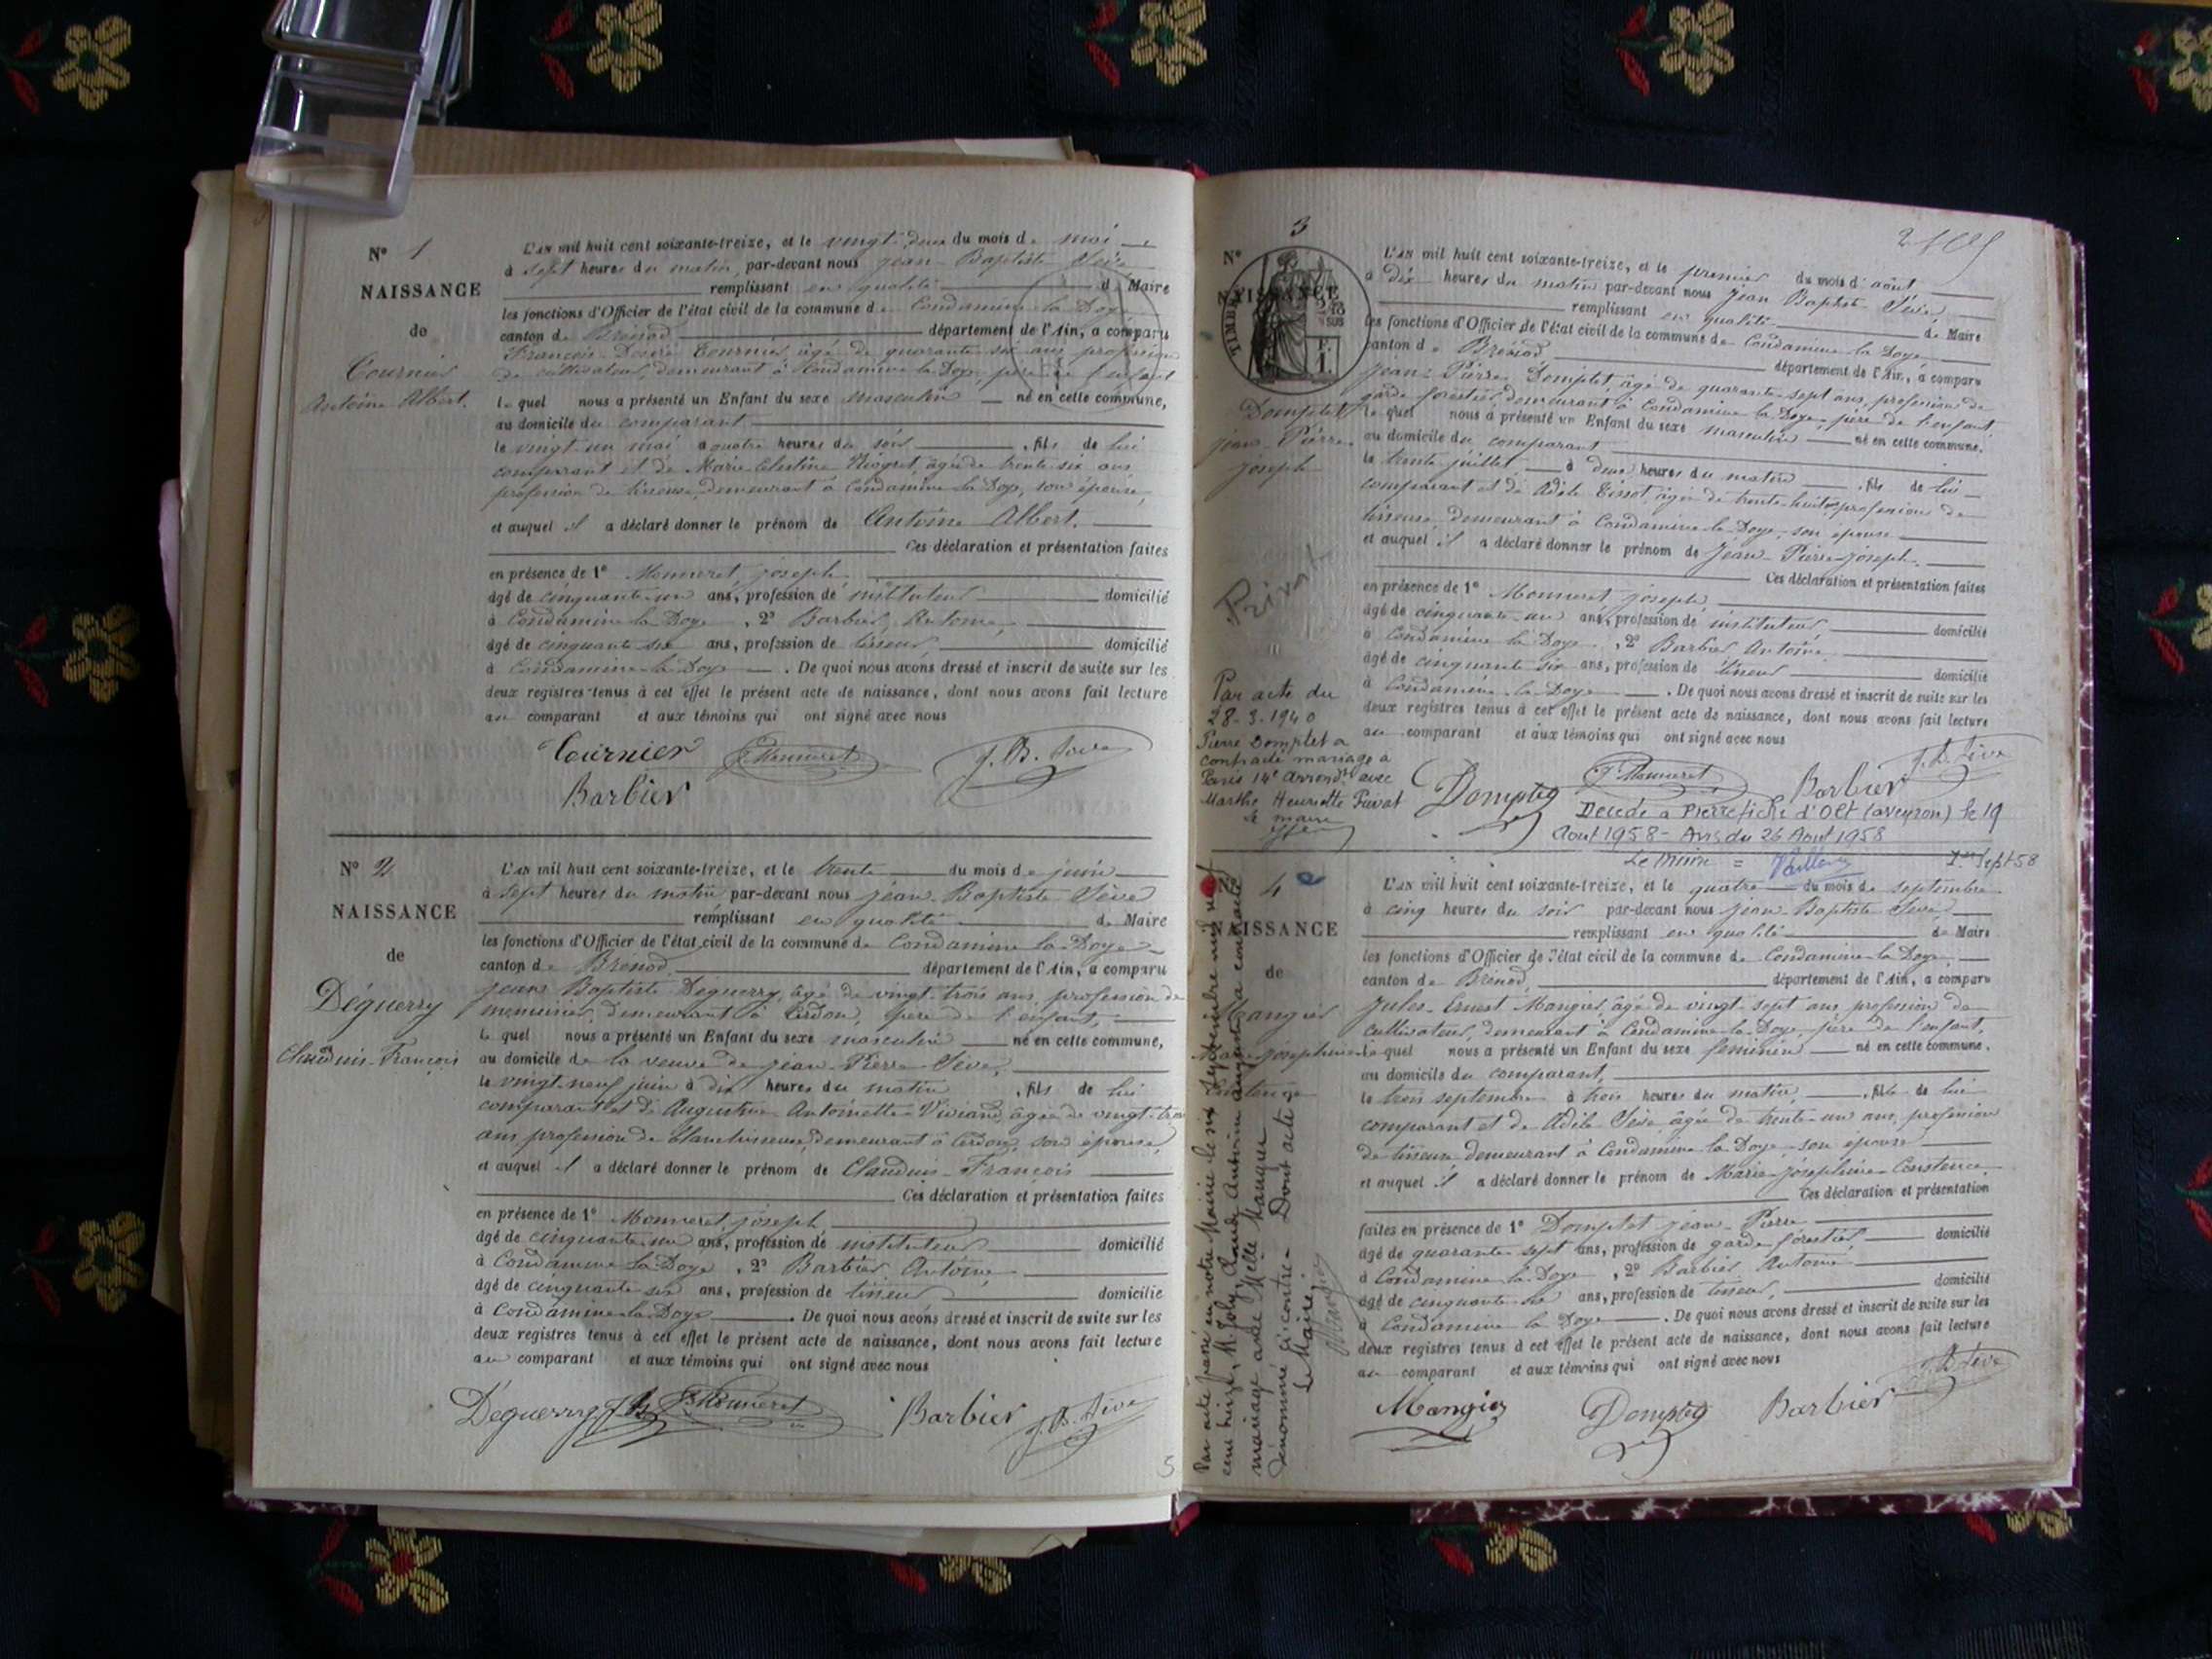 N° 1
NAISSANCE
de
Tournier
Antoine Albert.
L'AN mil huit cent soixante-treize, et le vingt deux du mois de mai
à sept heures du matin, par-devant nous Jean-Baptiste Sève
remplissant en qualité de Maire
les fonctions d'Officier de l'état civil de la commune de Condamine-la-Doye
canton de Brénod département de l'Ain, a comparu
François Désiré Tournier, âgé de quarante six ans, profession
de cultivateur, demeurant à Condamine-la-Doye, père de l'enfant
lequel nous a présenté un Enfant du sexe masculin né en cette commune,
au domicile du comparant
le vingt-un mai à quatre heures du soir, fils de lui
comparant et de Marie-Célestine Niogret, âgée de trente-six ans
profession de tisseuse, demeurant à Condamine-la-Doye, son épouse,
et auquel il a déclaré donner le prénom de Antoine Albert.
Ces déclaration et présentation faites
en présence de 1° Monneret, joseph
âgé de cinquante-un ans, profession de instituteur domicilié
à Condamine-la-Doye, 2° Barbier, Antoine,
âgé de cinquante six ans, profession de tisseur, domicilié
à Condamine-la-Doye. De quoi nous avons dressé et inscrit de suite sur les
deux registres tenus à cet effet le présent acte de naissance, dont nous avons fait lecture
au comparant et aux témoins qui ont signé avec nous
Tournier J. Monneret J. B. Sève
Barbier
N° 2
NAISSANCE
de
Déguerry
Claudius-François
L'AN mil huit cent soixante-treize, et le trente du mois de juin
à sept heures du matin par-devant nous Jean-Baptiste Sève
remplissant en qualité de Maire
les fonctions d'Officier de l'état civil de la commune de Condamine-la-Doye
canton de Brénod département de l'Ain, a comparu
Jean Baptiste Déguerry, âgé de vingt-trois ans, profession de
menuisier, demeurant à Cerdon, père de l'enfant,
lequel nous a présenté un Enfant du sexe masculin né en cette commune,
au domicile de la veuve de Jean-Pierre Sève,
le vingt-neuf juin à dix heures du matin, fils de lui
comparant et de Augustine Antoinette Viviand, âgée de vingt-trois
ans, profession de blanchisseuse, demeurant à Cerdon, son épouse,
et auquel il a déclaré donner le prénom de Claudius-François
Ces déclaration et présentation faites
en présence de 1° Monneret, joseph,
âgé de cinquante-un ans, profession de instituteur domicilié
à Condamine-la-Doye, 2° Barbier Antoine
âgé de cinquante six ans, profession de tisseur domicilié
à Condamine-la-Doye. De quoi nous avons dressé et inscrit de suite sur les
deux registres tenus à cet effet le présent acte de naissance, dont nous avons fait lecture
au comparant et aux témoins qui ont signé avec nous
Déguerry J. B. J. Monneret Barbier J. B. Sève
3
N° 3
NAISSANCE
TIMBRE
F.
1.
Domptet
Jean-Pierre
joseph
L'AN mil huit cent soixante-treize, et le premier du mois d'août
à dix heures du matin par-devant nous Jean-Baptiste Sève
remplissant en qualité de Maire
les fonctions d'Officier de l'état civil de la commune de Condamine-la-Doye
canton de Brénod département de l'Ain, a comparu
Jean-Pierre Domptet, âgé de quarante-sept ans, profession de
garde forestier, demeurant à Condamine-la-Doye, père de l'enfant,
lequel nous a présenté un Enfant du sexe masculin né en cette commune,
au domicile du comparant
le trente juillet à deux heures du matin, fils de lui
comparant et de Adèle Tissot, âgée de trente-huit ans, profession de
tisseuse, demeurant à Condamine-la-Doye, son épouse
et auquel il a déclaré donner le prénom de Jean-Pierre-joseph.
Ces déclaration et présentation faites
en présence de 1° Monneret joseph,
âgé de cinquante-un ans, profession de instituteur, domicilié
à Condamine-la-Doye, 2° Barbier Antoine,
âgé de cinquante six ans, profession de tisseur domicilié
à Condamine-la-Doye. De quoi nous avons dressé et inscrit de suite sur les
deux registres tenus à cet effet le présent acte de naissance, dont nous avons fait lecture
au comparant et aux témoins qui ont signé avec nous
Domptet J. Monneret Barbier J. B. Sève
Par acte du
28-3-1940
Pierre Domptet a
contracté mariage à
Paris 14e arrondt avec
Marthe Henriette Privat
le maire
Décédé à Pierrefiche d'Olt (aveyron) le 19
Aout 1958 - Avis du 26 Aout 1958
Le Maire = 1er Sept 58
N° 4
NAISSANCE
de
Mangier
Marie-josephine
Constence
L'AN mil huit cent soixante-treize, et le quatre du mois de septembre
à cinq heures du soir par-devant nous Jean-Baptiste Sève,
remplissant en qualité de Maire
les fonctions d'Officier de l'état civil de la commune de Condamine-la-Doye,
canton de Brénod, département de l'Ain, a comparu
Jules-Ernest Mangier, âgé de vingt-sept ans, profession de
cultivateur, demeurant à Condamine-la-Doye, père de l'enfant,
lequel nous a présenté un Enfant du sexe féminin né en cette commune,
au domicile du comparant,
le trois septembre à trois heures du matin, fille de lui
comparant et de Adèle Sève, âgée de trente-un ans, profession
de tisseuse demeurant à Condamine-la-Doye, son épouse
et auquel il a déclaré donner le prénom de Marie-joséphine-Constence.
Ces déclaration et présentation
faites en présence de 1° Domptet Jean-Pierre
âgé de quarante-sept ans, profession de garde forestier, domicilié
à Condamine-la-Doye, 2° Barbier Antoine
âgé de cinquante-six ans, profession de tisseur, domicilié
à Condamine la Doye. De quoi nous avons dressé et inscrit de suite sur les
deux registres tenus à cet effet le présent acte de naissance, dont nous avons fait lecture
au comparant et aux témoins qui ont signé avec nous
Mangier Domptet Barbier J. B. Sève
Par acte passé en notre Mairie le six Septembre mil neuf
cent treize, M. Joly Claude Antoine Auguste a contracté
mariage avec Melle Mangier
dénommée ci-contre - Dont acte
Le Maire,